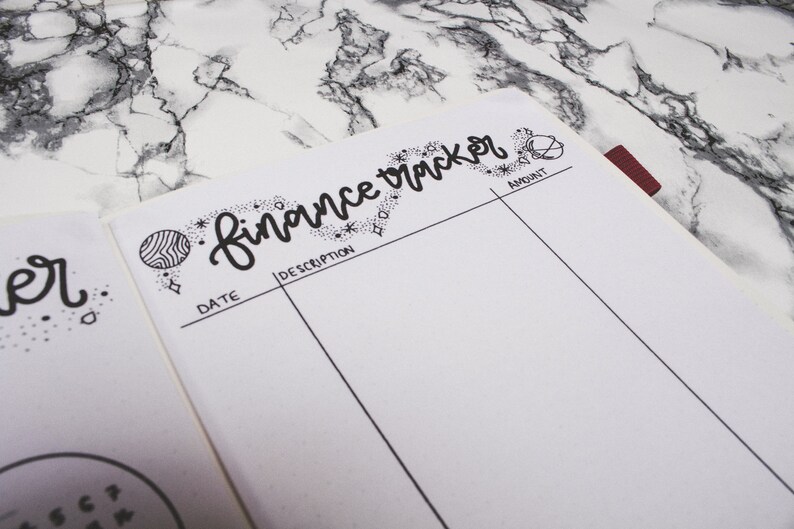 finance tracker
DATE DESCRIPTION AMOUNT
er